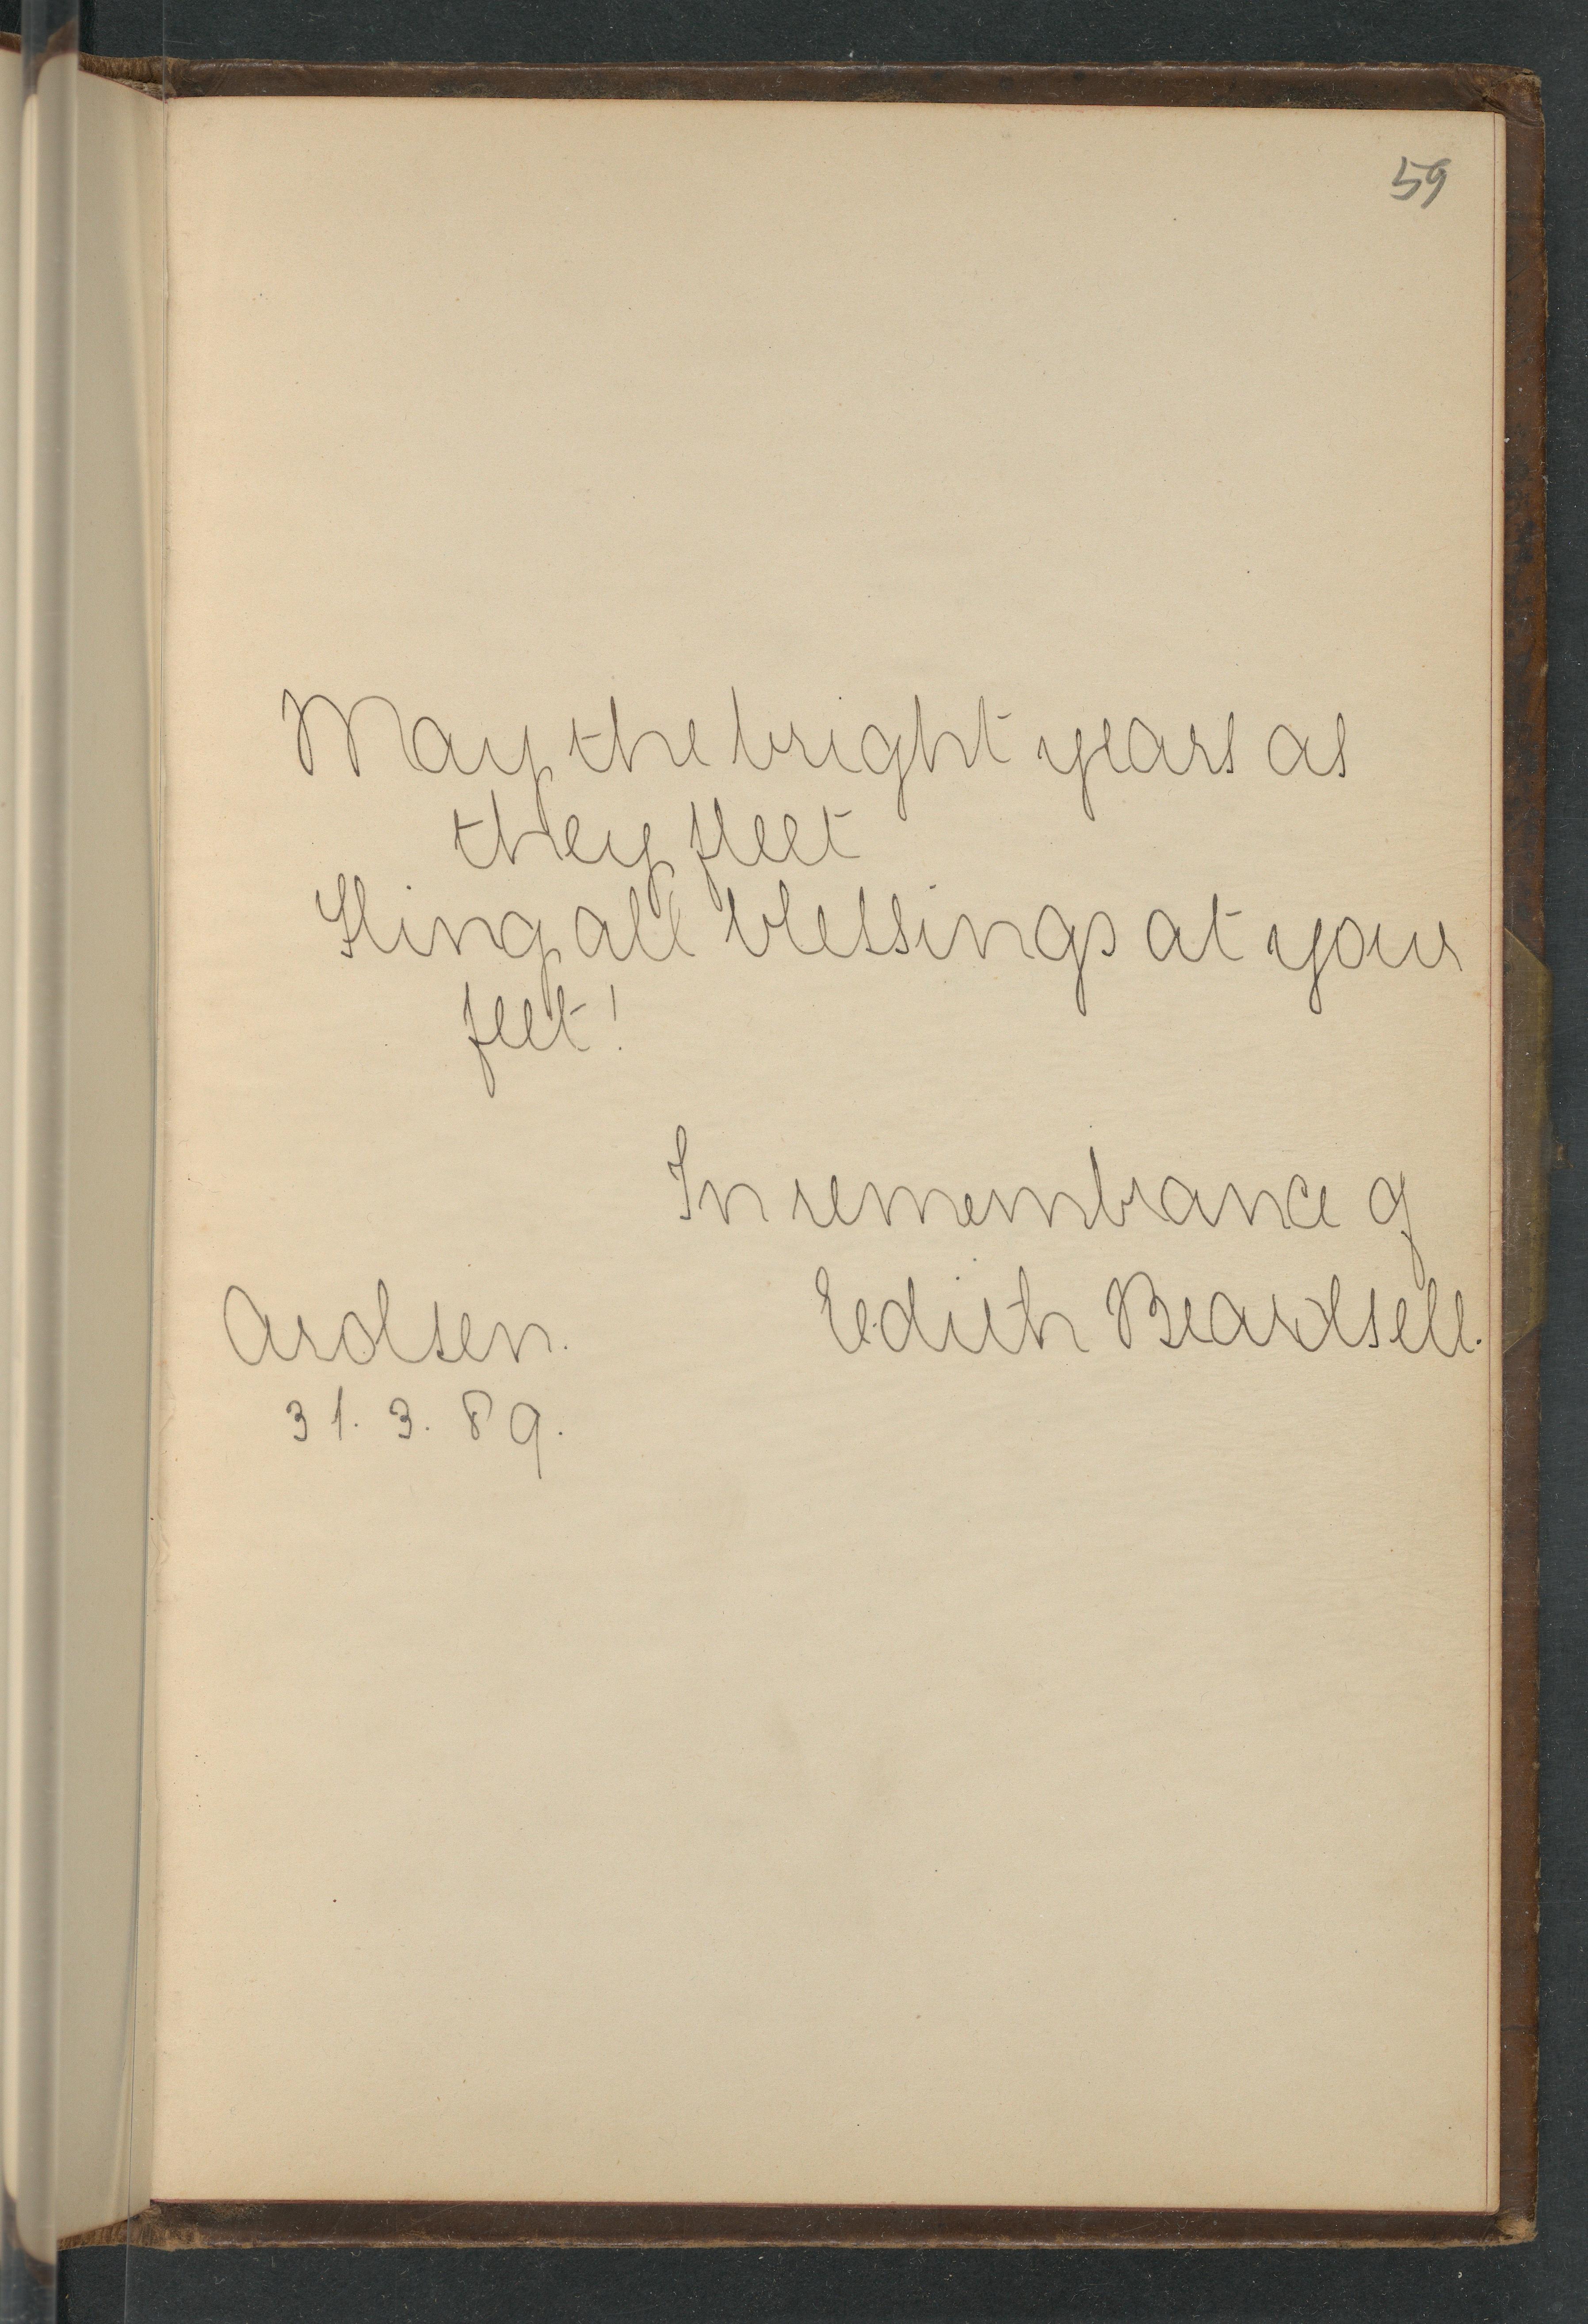 59
May the bright years as
they fleet
Fling all blessings at your
feet!
In remembrance of
Edith Beardsell.
Arolsen.
31. 3. 89.